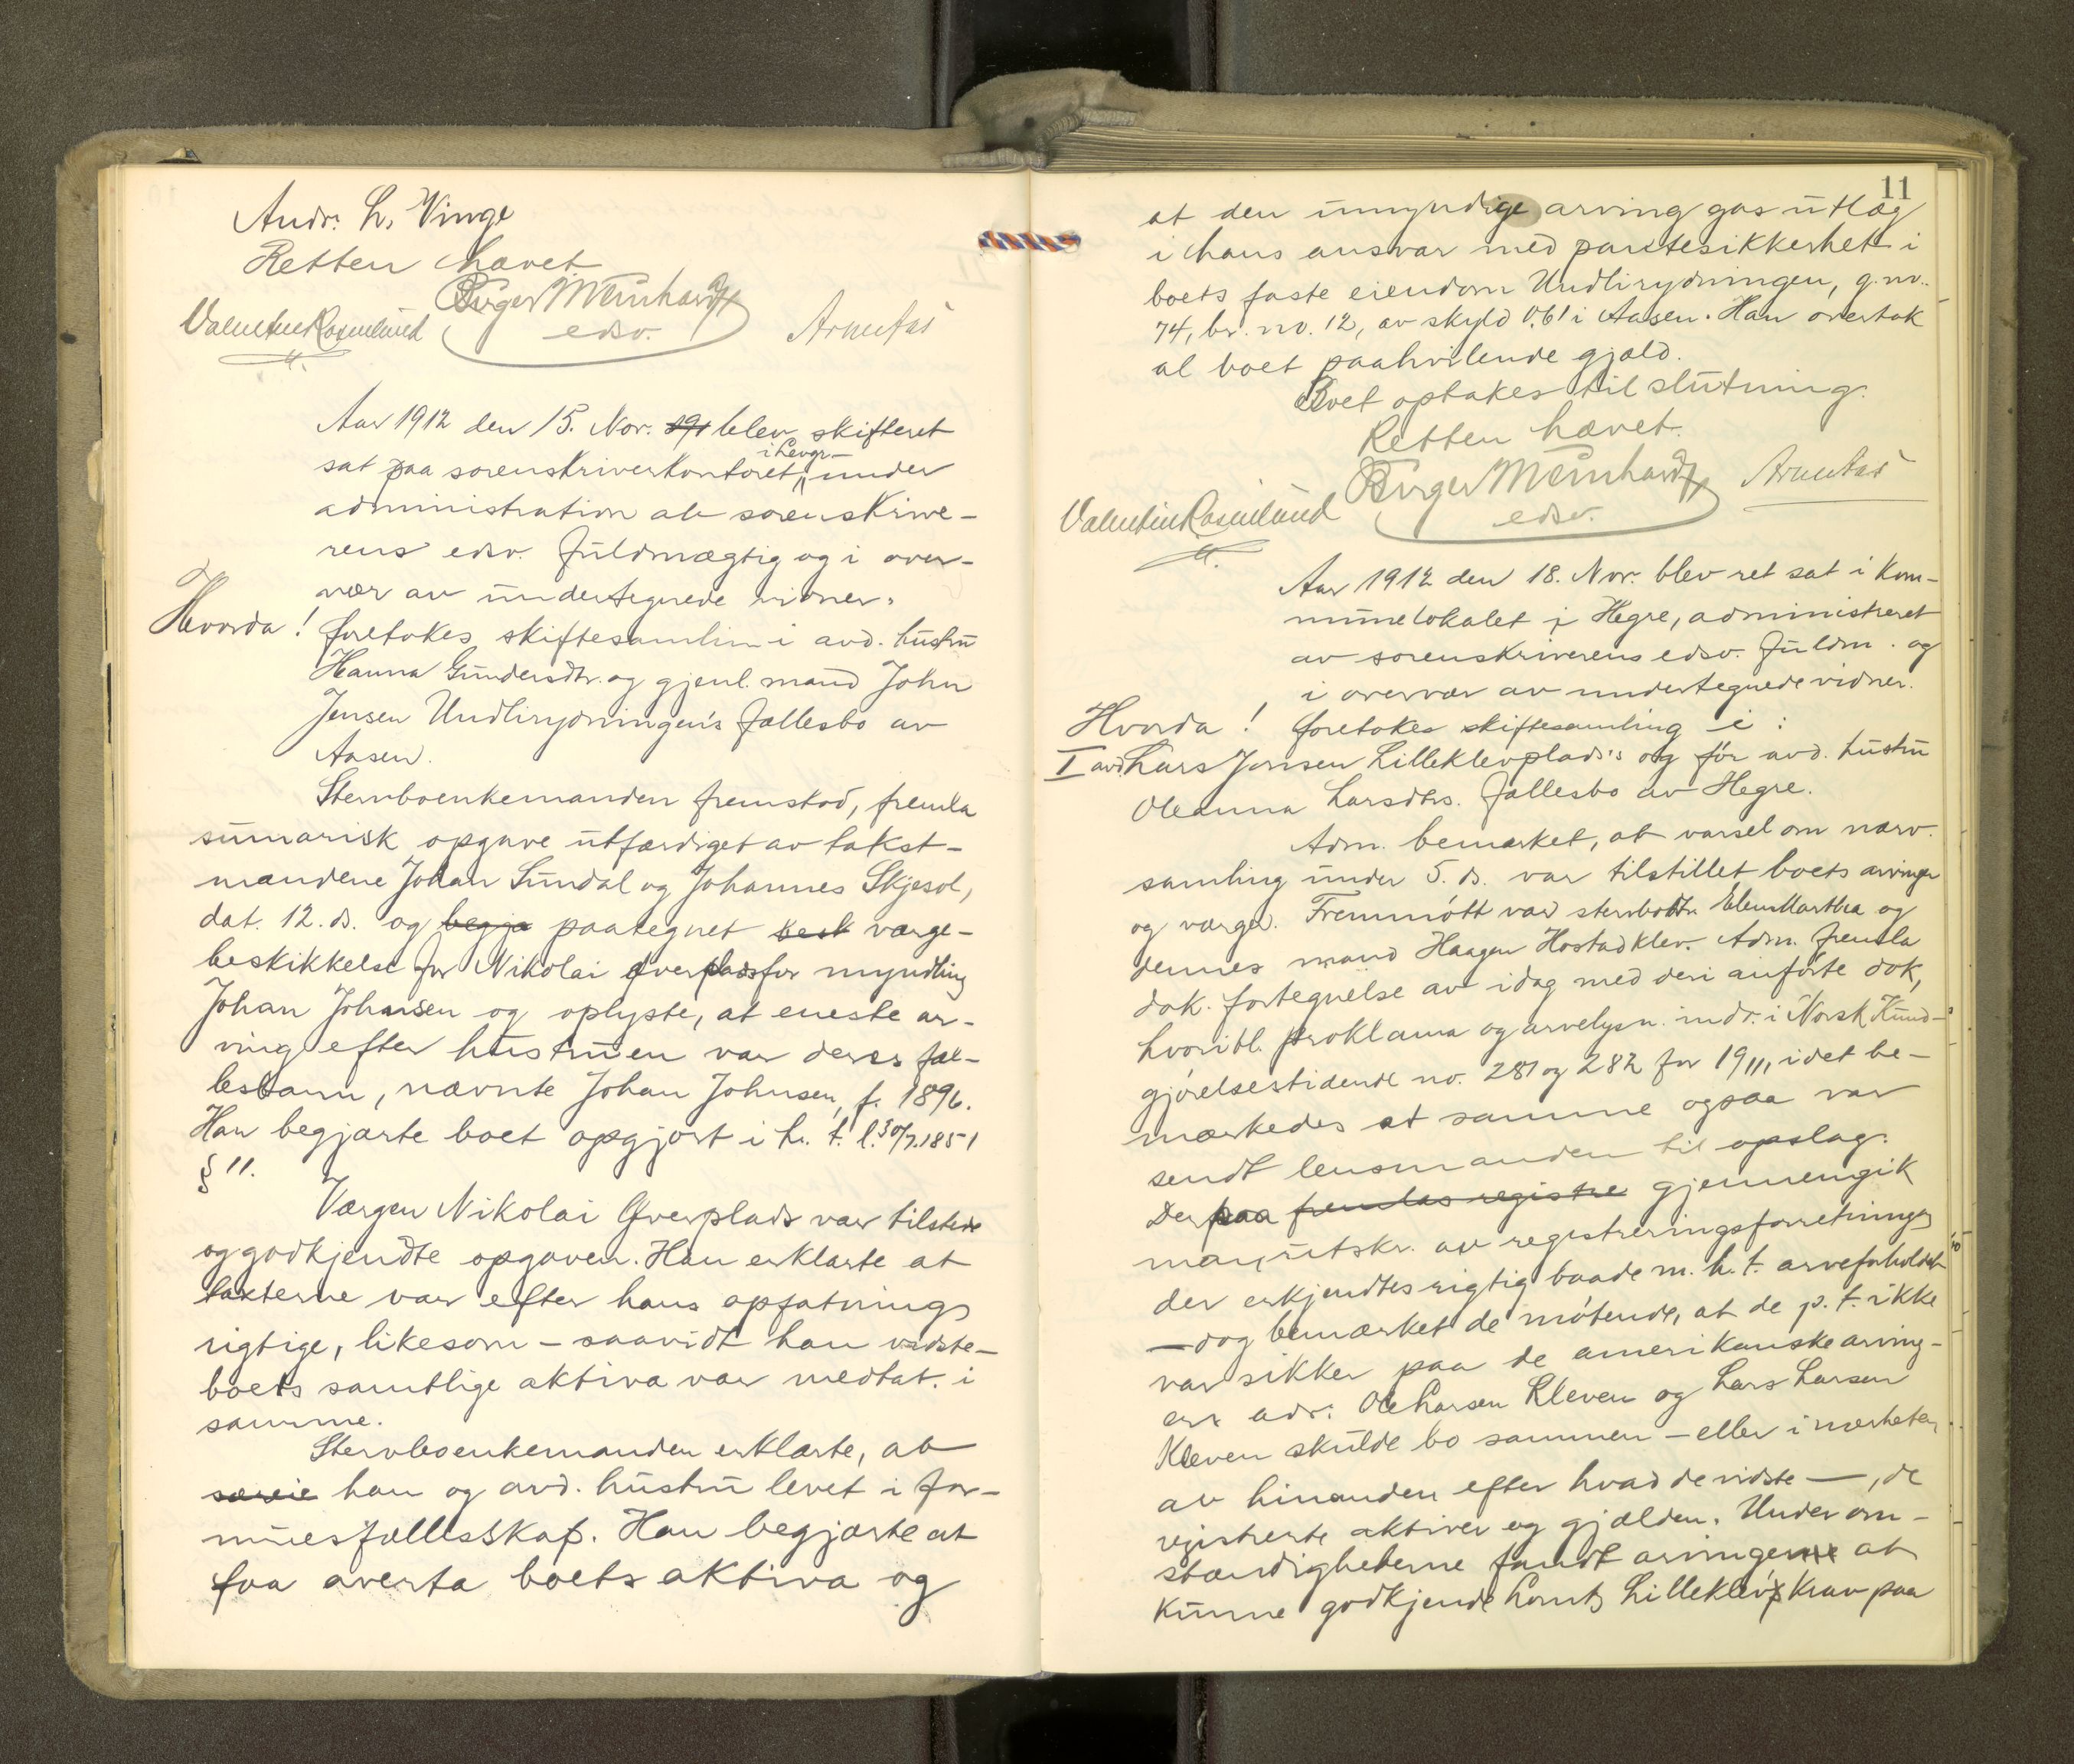 Andr. L. Vinge
Retten hævet
Birger Meinhardt
Valentin Rosenlund edsv.
Aar 1912 den 15. Nov. 191 blev skifteret
sat paa sorenskriverkontoret i Levgr. under
administration av sorenskrive-
rens edsv. fuldmægtig og i over-
vær av undertegnede vidner.
Hvorda! foretokes skiftesamlin i avd. hustru
Hanna Gundersdtr. og gjenl. mand John
Jensen Undlirydningen's fællesbo av
Aasen.
Stervboenkemanden fremstod, fremla
sumarisk opgave utfærdiget av takst-
mændene Johan Sundal og Johannes Skjesol,
dat. 12. ds. og begjæ paategnet besk værge-
beskikkelse for Nikolai Øverplads for myndling
Johan Johnsen og oplyste, at eneste ar-
ving efter hustruen var deres fæl-
lesbarn, nævnte Johan Johnsen, f. 1896.
Han begjærte boet opgjort i h. t. l. 30/7.1851
§ 11.
Værgen Nikolai Øverplads var tilstede
og godkjendte opgaven. Han erklærte at
takterne var efter hans opfatning
rigtige, likesom - saavidt han vidste -
boets samtlige aktiva var medtat. i
samme.
Stervboenkemanden erklærte, at
særeie han og avd. hustru levet i for-
muesfællesskap. Han begjærte at
faa overta boets aktiva og
11
at den umyndige arving gas utlæg
i hans ansvar med pantesikkerhet i
boets faste eiendom Undlirydningen, g. no.
74, br. no. 12, av skyld 0.61 i Aasen. Han overtok
al boet paahvilende gjæld.
Boet optakes til slutning.
Retten hævet.
Birger Meinhardt
Valentin Rosenlund edsv.
Aar 1912 den 18. Nov. blev ret sat i kom-
munelokalet i Hegre, administreret
av sorenskriverens edsv. fuldm. og
i overvær av undertegnede vidner.
Hvorda! foretokes skiftesamling i:
I avd. Lars Jonsen Lilleklevplads's og før avd. hustru
Oleanna Larsdtrs. fællesbo av Hegre.
Adm. bemærket, at varsel om nærv.
samling under 5. ds. var tilstillet boets arvinger
og værger. Fremmøtt var stervbodtr. Elen Martha og
dennes mand Haagen Hostadklev. Adm. fremla
dok. fortegnelse av idag med deri anførte dok,
hvoribl. proklama og arvelysn. indr. i Norsk Kund-
gjørelsestidende no. 281 og 282 for 1911, idet be-
mærkedes at samme ogsaa var
sendt lensmanden til opslag.
Derpaa fremlas registre gjennemgik
man utskr. av registreringsforretningen
der erkjendtes rigtig baade m. h. t. arveforholdet
- dog bemærket de møtende, at de p. t. ikke
var sikker paa de amerikanske arving-
ers adr: Ole Larsen Kleven og Lars Larsen
Kleven skulde bo sammen - eller i nærheten
av hinanden efter hvad de vidste -, de
registrerte aktiver og gjælden. Under om-
stændigheterne fandt arvingerne at
kunne godkjende Lornts Lilleklev's krav paa